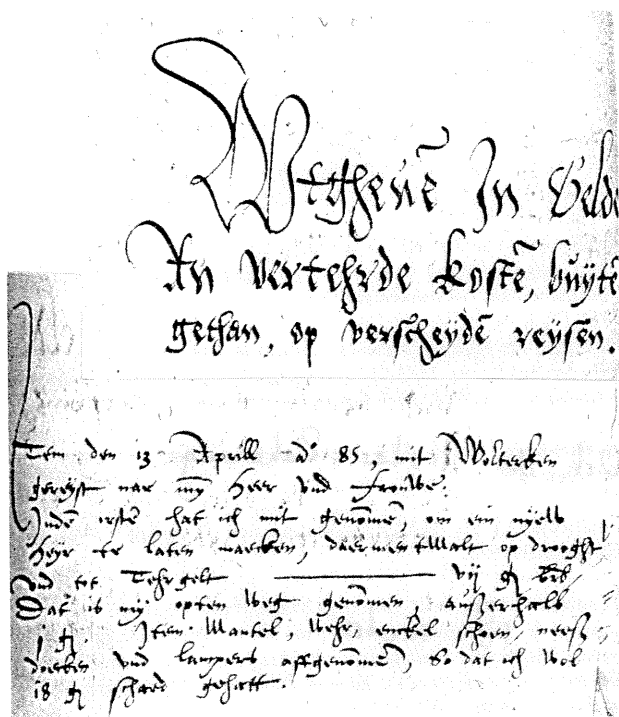 Wtgheuē In Gelde
An vertehrde kostē, buÿtē
gethan, op verscheÿdē reÿsen.
Item den 13 Aprill aº 85, mit Wolterken
gereÿst nae mÿ Heer vnd frouwe.
Indē irstē hat ich mit genōmē, om ein nÿew
heÿr te laten maecken, daermen twalt op drooght
vnd tot Tehrgelt ——— vij gl brb.
Dat is mÿ opten weg genōmen, außerhalb
j gl. Iten Mantel, wehr, enckel schoen, neeß
doecken vnd lampers affgenōmē, So dat ich wol
18 gl schaed gehatt.